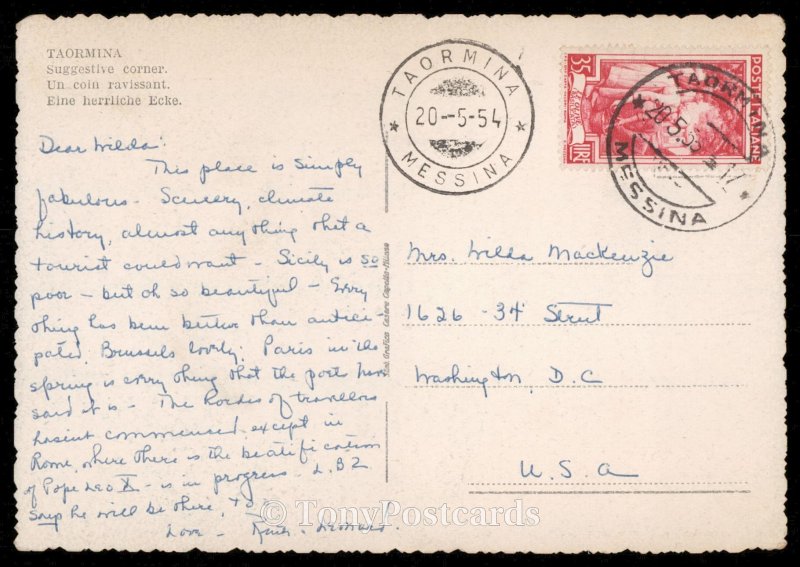 TAORMINA
Suggestive corner.
Un coin ravissant.
Eine herrliche Ecke.
TAORMINA
20-5-54
MESSINA
35
LIRE
POSTE ITALIANE
TAORMINA
20.5.53
MESSINA
Dear Wilda:
This place is simply
fabulous - Scenery, climate
history, almost anything that a
tourist could want - Sicily is so
poor - but oh so beautiful - Every
thing has been better than antici-
pated. Brussels lovely. Paris in the
spring is every thing that the poets have
said it is - The hordes of travellers
hasint commenced except in
Rome, where there is the beatification
of Pope Leo X - is in progress. L.B2
says he will be there,
Love - Leonard.
Mrs. Wilda Mackenzie
1626 - 34 Street
Washington, D.C
U.S.A
© TonyPostcards